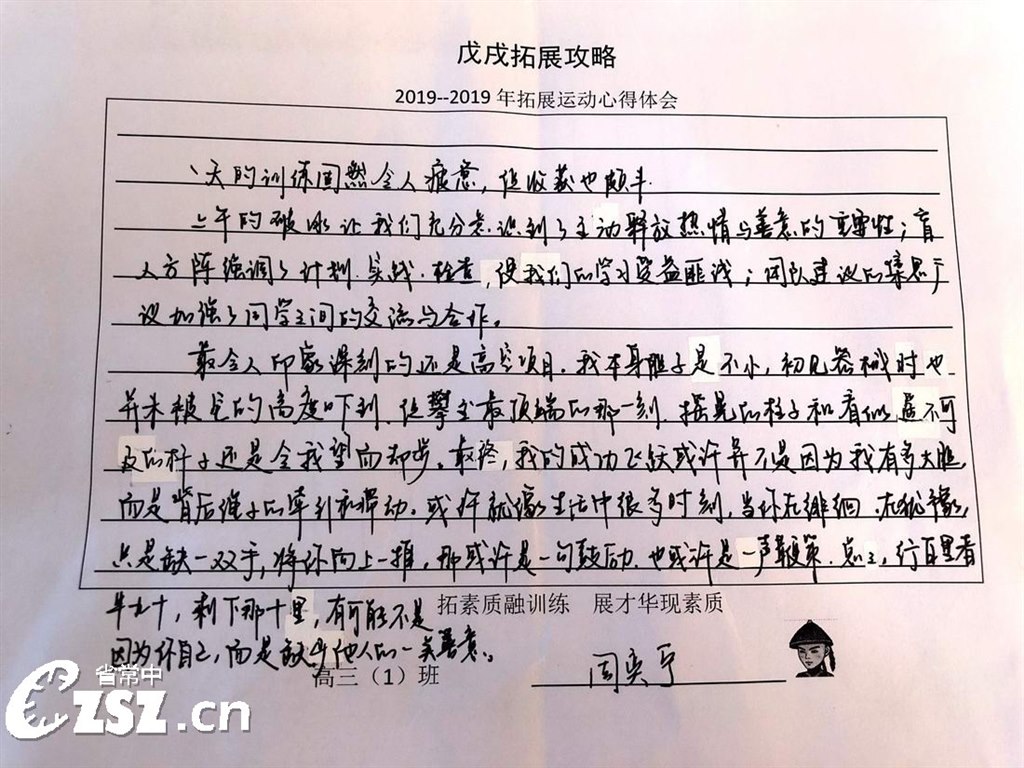 戊戌拓展攻略
2019--2019 年拓展运动心得体会
一天的训练固然令人疲惫，但收获也颇丰.
上午的破冰让我们充分意识到了主动释放热情与善意的重要性；盲
人方阵强调了计划.实战.检查，使我们的学习受益匪浅；团队建设的集思广
议加强了同学之间的交流与合作。
最令人印象深刻的还是高空项目。我本身胆子是不小，初见器械时也
并未被它的高度吓到.但攀至最顶端的那一刻.摇晃的柱子和看似遥不可
及的杆子还是令我望而却步。最终，我的成功飞跃或许并不是因为我有多大胆，
而是背后绳子的牵引和带动。或许就像生活中很多时刻，当你在徘徊.在犹豫，
只是缺一双手，将你向上一推，那或许是一句鼓励.也或许是一声鞭策.总之，行百里者
半九十，剩下那十里，有可能不是
因为你自己，而是缺少他人的一类善意。
拓素质融训练 展才华现素质
高三（1）班
周奕亨
省常中
CZSZ.cn